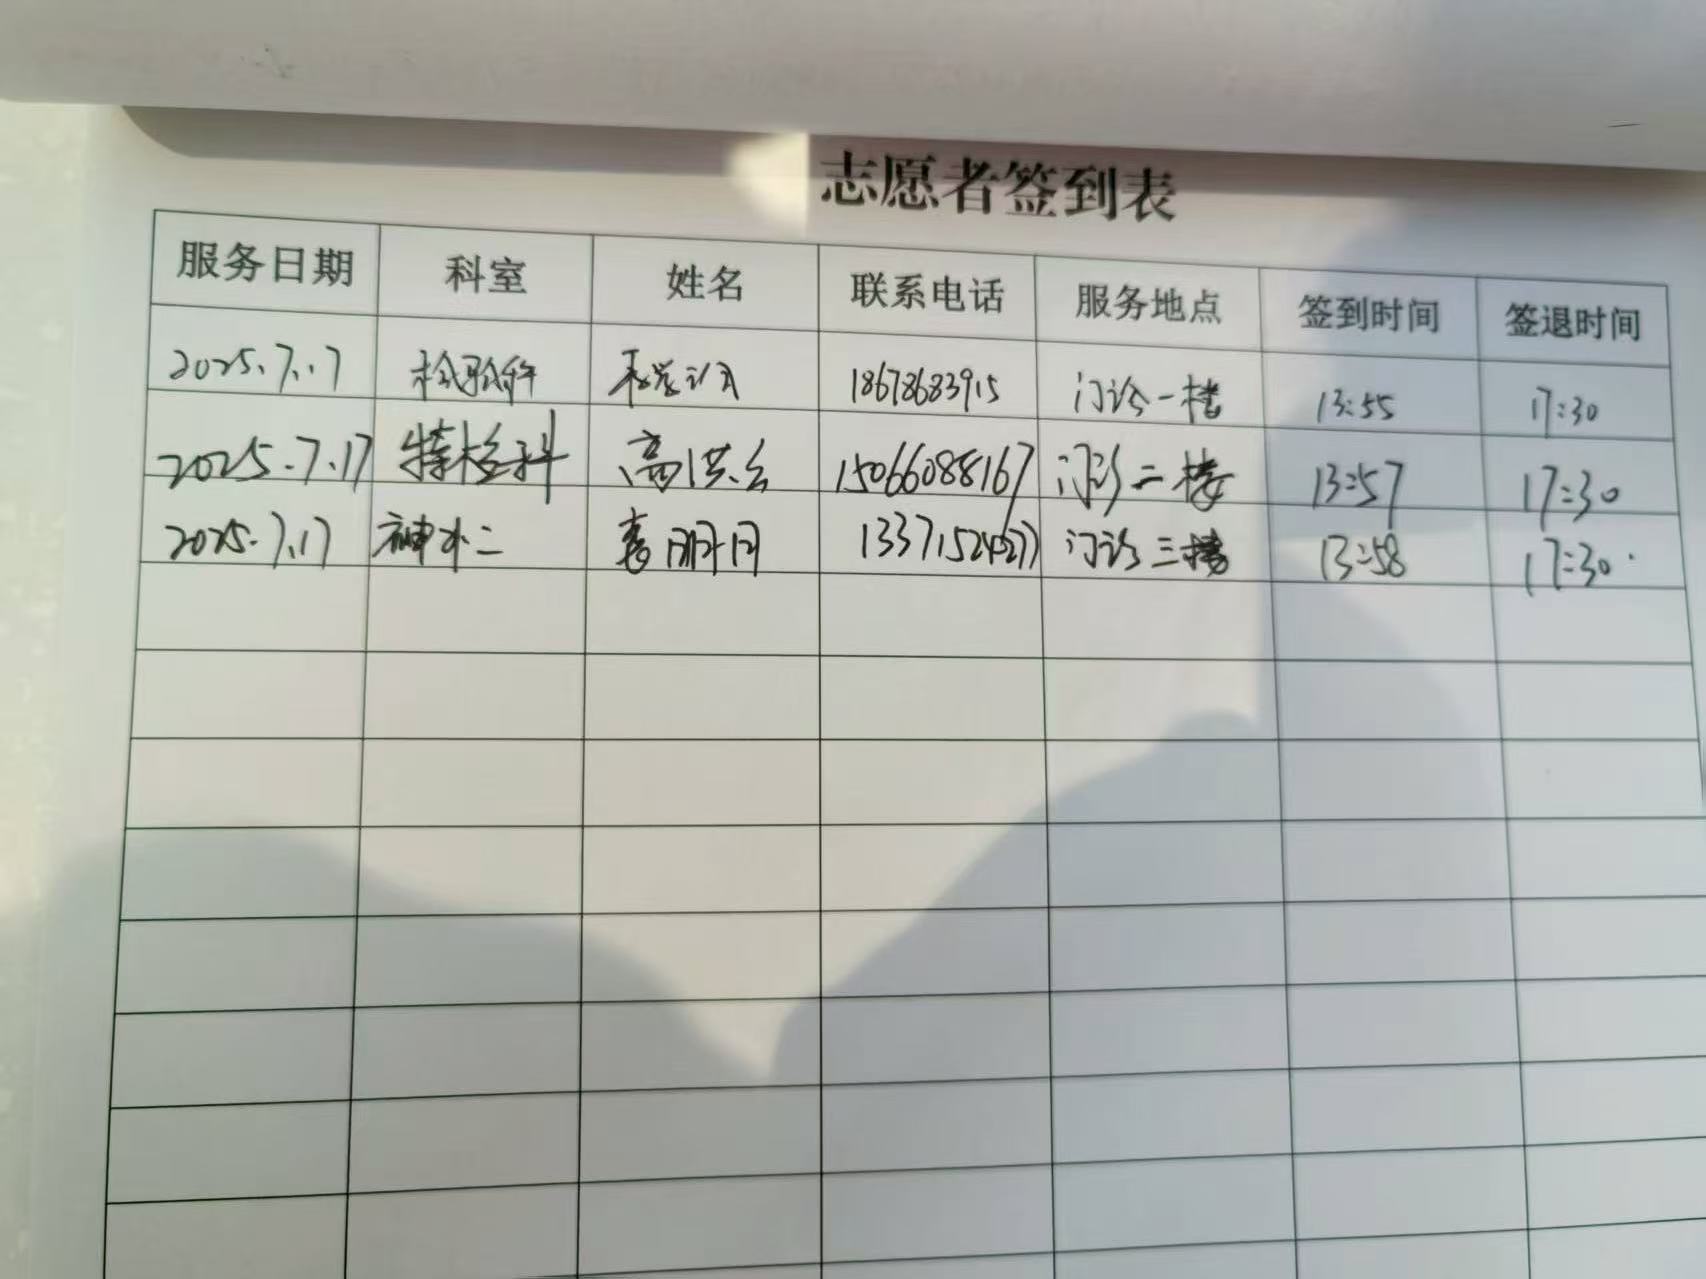 志愿者签到表
服务日期 科室 姓名 联系电话 服务地点 签到时间 签退时间
2025.7.17 检验科 18678683915 门诊一楼 13:55 17:30
2025.7.17 特检科 高洪 15066088167 门诊二楼 13:57 17:30
2025.7.17 神 二 明月 门诊三楼 13:58 17:30